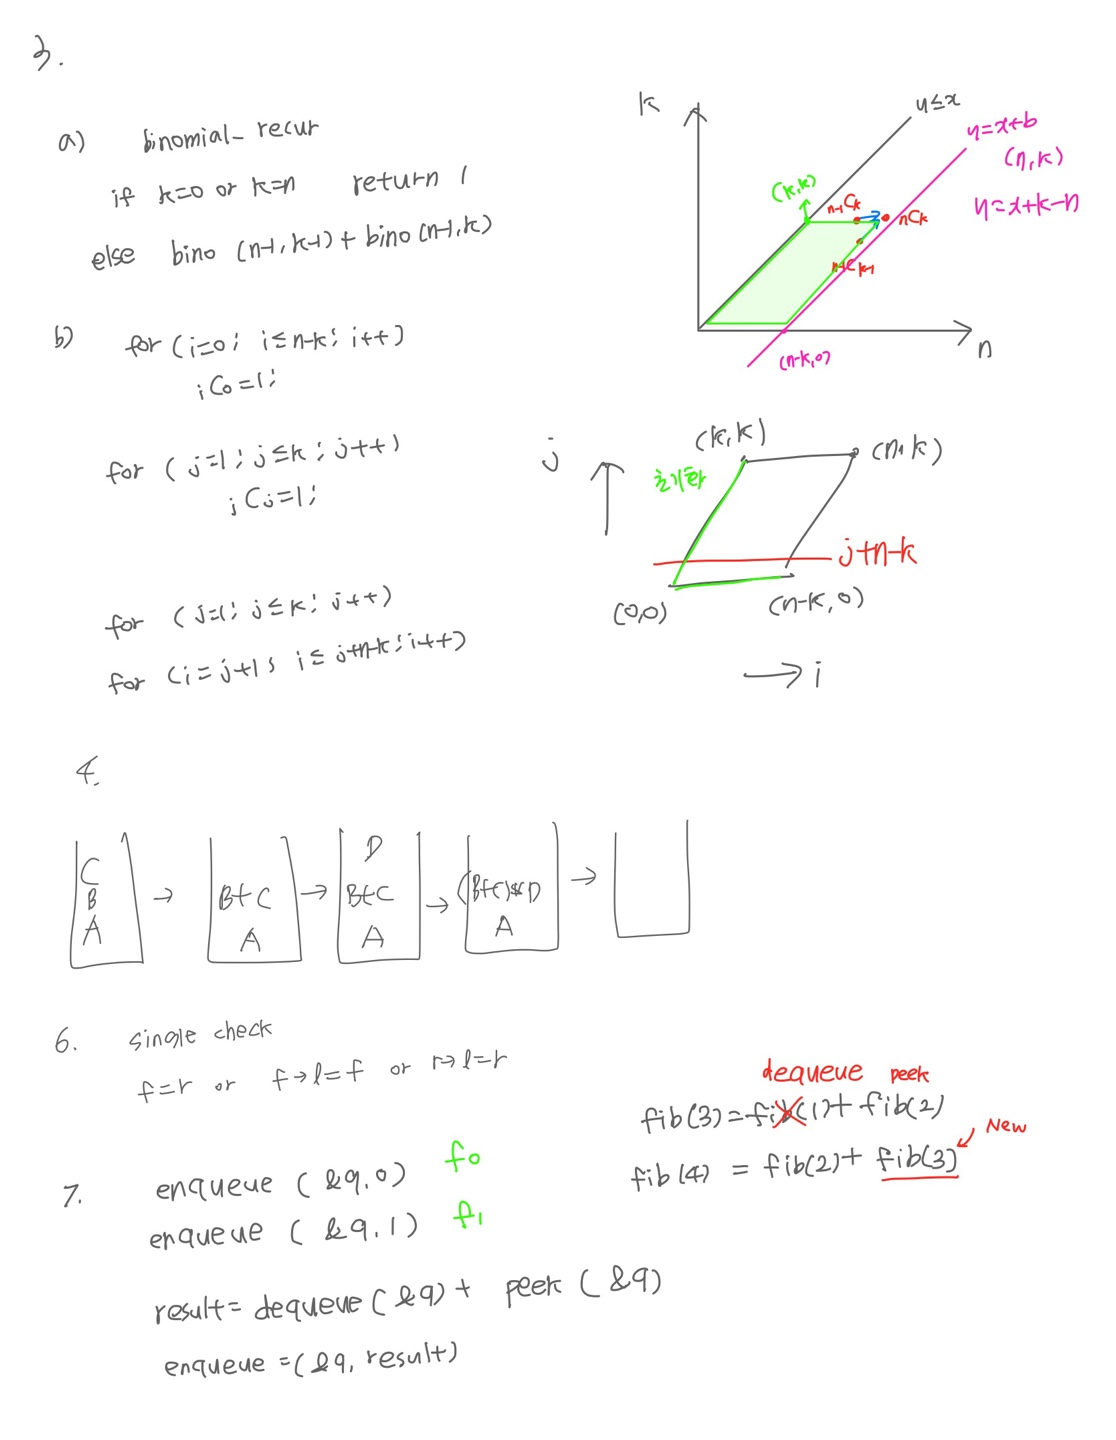 3.
a) binomial_recur
if k=0 or k=n return 1
else bino (n-1, k-1) + bino (n-1, k)
k
y≤x
y=x+b
(n, k)
y=x+k-n
(k, k)
n-1Ck
nCk
n-1Ck-1
(n-k, 0)
n
b) for (i=0; i≤n-k; i++)
iC0=1;
for (j=1; j≤k; j++)
jCj=1;
for (j=1; j≤k; j++)
for (i=j+1; i≤ j+n-k; i++)
j
(k, k)
(n, k)
초기화
j+n-k
(0,0)
(n-k, 0)
→ i
4.
C
B
A
→
B+C
A
→
D
B+C
A
→
(B+C)*D
A
→
6. single check
f=r or f→l=f or r→l=r
dequeue peek
fib(3)=fib(1)+fib(2)
fib(4) = fib(2)+ fib(3)
New
7. enqueue (&q, 0) f0
enqueue (&q, 1) f1
result= dequeue (&q) + peek (&q)
enqueue =(&q, result)